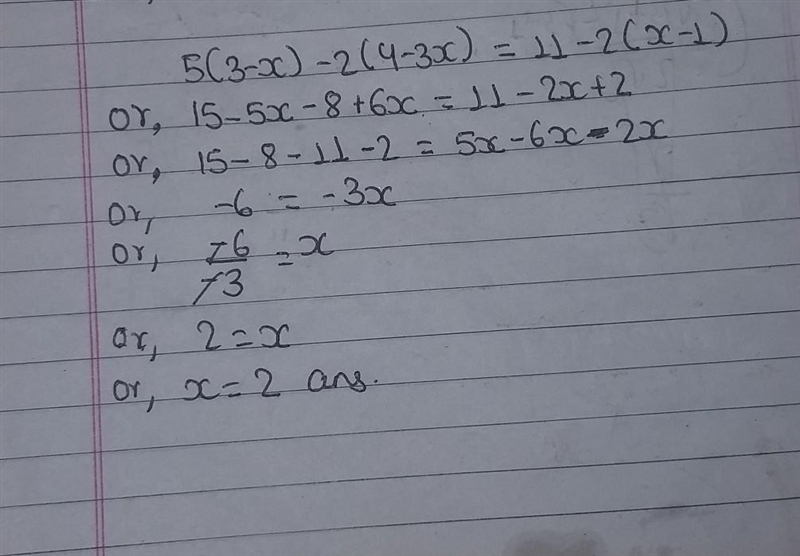 5(3-x) -2(4-3x) = 11-2(x-1)
or, 15-5x-8+6x = 11-2x+2
or, 15-8-11-2 = 5x-6x-2x
or, -6 = -3x
or, -6/-3 = x
or, 2=x
or, x=2 ans.